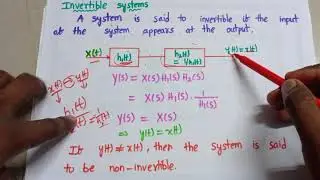 Invertible systems
A system is said to invertible if the input
at the system appears at the output.
X(t) h₁(t) h₂(t) y(t)=x(t)
= 1/h₁(t)
x(t) → y(t)
h₁(t)
Y(S) = X(S) H₁(S) H₂(S)
= X(S) H₁(S) · 1/H₁(S)
Y(S) = X(S)
⇔ y(t) = x(t)
If y(t) ≠ x(t), then the system is said
to be non-invertible.